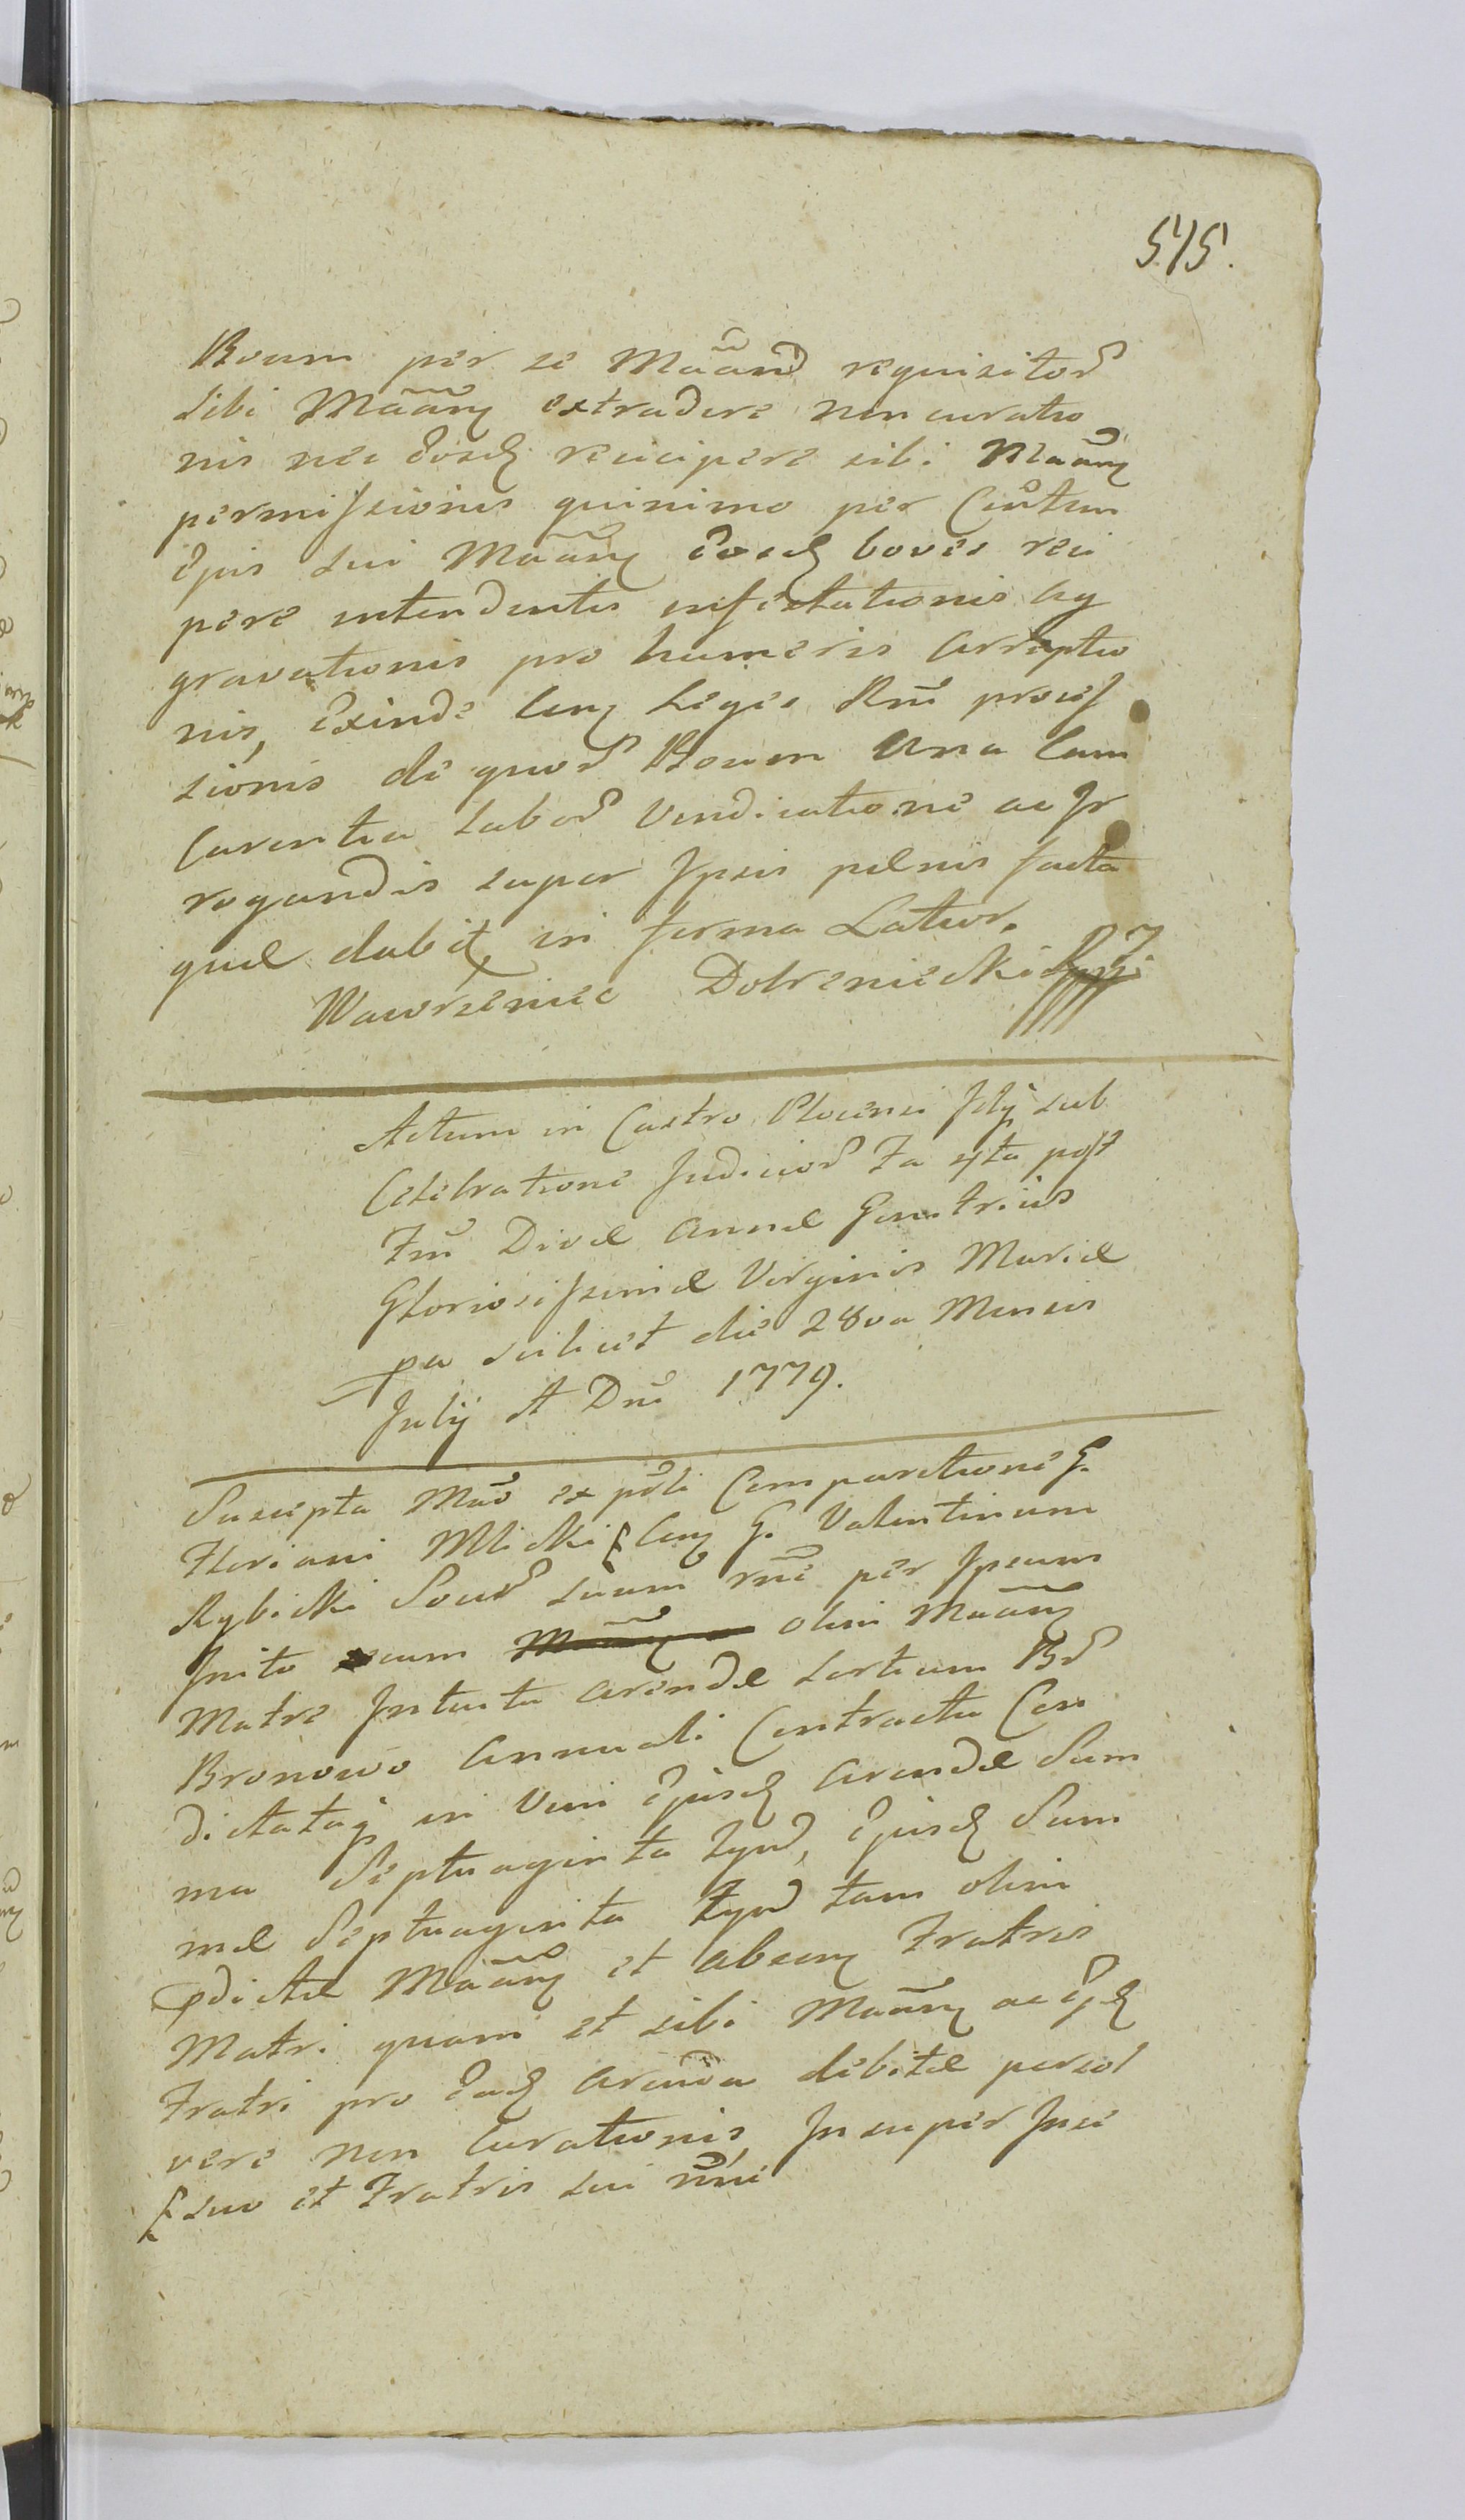 515.
Boum per se Mãand requisitor
sibi Mãanq extradere non curatio
nis nec eosd recipere sibi Mãanq
permissionis quinimo per
Ejus sui Mãanq Eosd boves reci
pere intendentis infestationis ag
gravationis pro humeris arreptio
nis, Exinde leges Rni proces
sionis de quor Boum una cum
Carentia labor Vendicatione ac Ir
rogandis super Ipsis pænis facta
quæ dabit in forma Latior.
Wawrzeniec Dobrzeniecki
Actum in Castro Plocensi fely sub
Celebratione Judicior Fa 4ta post
Fm Divæ Annæ Genitricis
Gloriosissimæ Virginis Mariæ
pa scilicet die 28va Mensis
Julij A Dni 1779.
Suscepta Mão ex põli Comparitione G.
Floriani Mlicki Conq G. Valentinum
Rybicki Socer suum rñe per Ipsum
Inito cum olim Mãanq
Matre Intuitu arendæ sortium Br
Bronowo Annuali Contractu Con
dictataq in Vim Ejusd arendæ Sum
ma Septuaginta tynf, Ejusd Sum
mæ Septuaginta tynf tam olim
pdictæ Mãanq et absenq Fratris
Matri quam et sibi Mãanq ac Ejd
Fratri pro Ead arenda debitæ persol
vere non Curationis, Insuper Inse
suo et Fratris sui nni